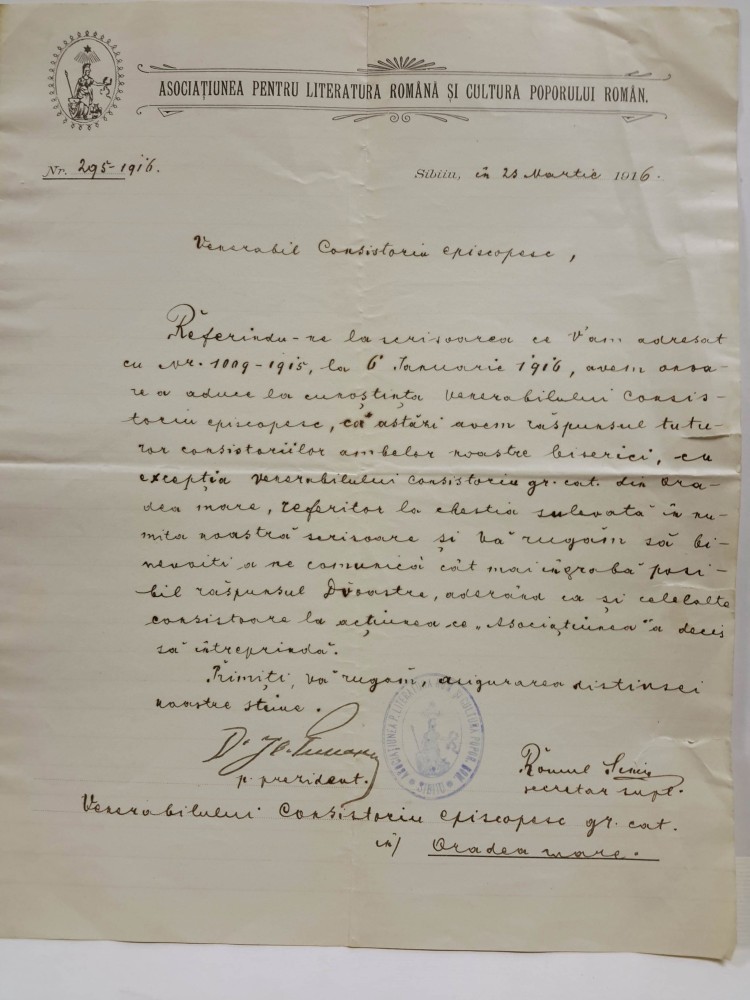 ASOCIAȚIUNEA PENTRU LITERATURA ROMÂNĂ ȘI CULTURA POPORULUI ROMÂN.
Nr. 295-1916.
Sibiiu, în 23 Martie 1916.
Venerabil Consistoriu episcopesc,
Referindu-ne la scrisoarea ce V'am adresat
cu Nr. 1009-1915, la 6 Ianuarie 1916, avem onoa-
re a aduce la cunoștința Venerabilului Consis-
toriu episcopesc, că astări avem răspunsul tutu-
ror consistoriilor ambelor noastre biserici, cu
excepția Venerabilului Consistoriu gr. cat. din Ora-
dea mare, referitor la chestia sulevată în nu-
mita noastră scrisoare și Vă rugăm să bi-
nevoiti a ne comunică cât mai îngrabă posi-
bil răspunsul Dvoastre, aderând ca și celelalte
consistoare la acțiunea ce „Asociațiunea" a decis
să întreprindă.
Primiți, vă rugăm, asigurarea distinsei
noastre stime.
Dr.
p. prezident.
ASOCIAȚIUNEA P. LITERATURA ROM. ȘI CULTURA POPOR. ROM.
SIBIIU
Romul Simu
secretar supl.
Venerabilului Consistoriu episcopesc gr. cat.
în/ Oradea mare.